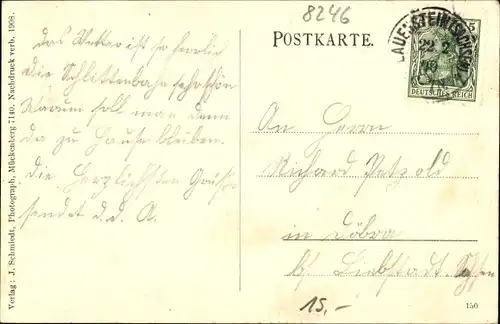 8246
POSTKARTE.
LAUENSTEIN (SACHSEN)
22.2
DEUTSCHES REICH
Das Wetter ist so herrlich
die Schlittenbahn sehr schön
Warum soll man denn
da zu Hause bleiben.
Die herzlichsten Grüße
sendet d. d. A.
An Herrn
Richard Petzold
in Döbra
b/ Liebstadt
15,-
150
Verlag: J. Schmiedt, Photograph, Mückenberg 7140. Nachdruck verb. 1908.